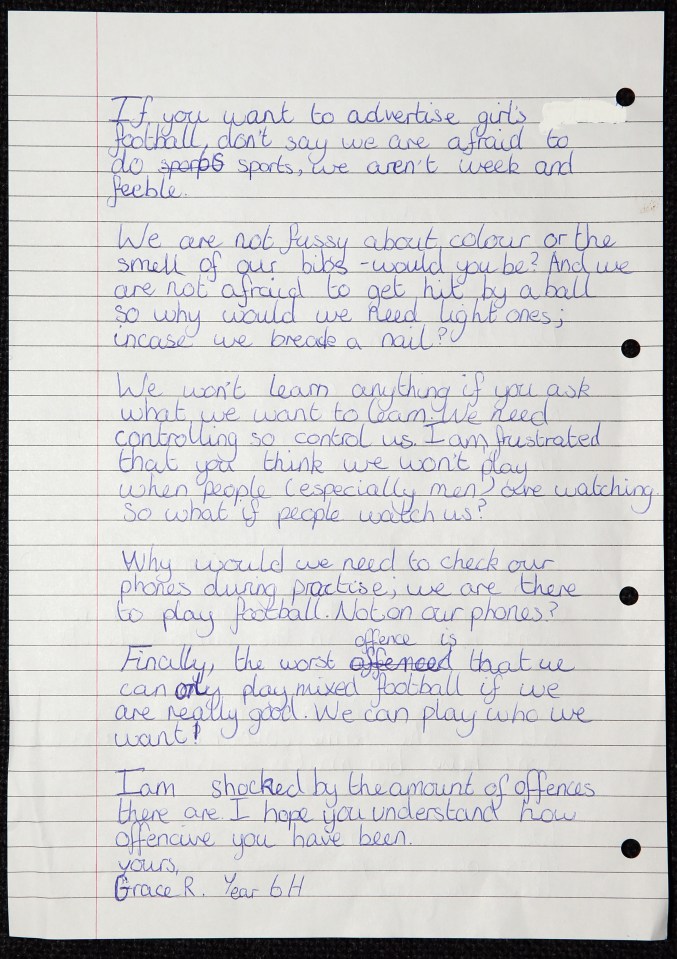 If you want to advertise girls
football, don't say we are afraid to
do sports sports, we aren't week and
feeble.
We are not fussy about colour or the
smell of our bibs - would you be? And we
are not afraid to get hit by a ball
so why would we need light ones;
incase we break a nail?
We won't learn anything if you ask
what we want to learn. We need
controlling so control us. I am frustrated
that you think we won't play
when people (especially men) are watching.
So what if people watch us?
Why would we need to check our
phones during practise; we are there
to play football. Not on our phones?
offence is
Finally, the worst offeneed that we
can only play mixed football if we
are really good. We can play who we
want!
I am shocked by the amount of offences
there are. I hope you understand how
offencive you have been.
yours,
Grace R. Year 6H